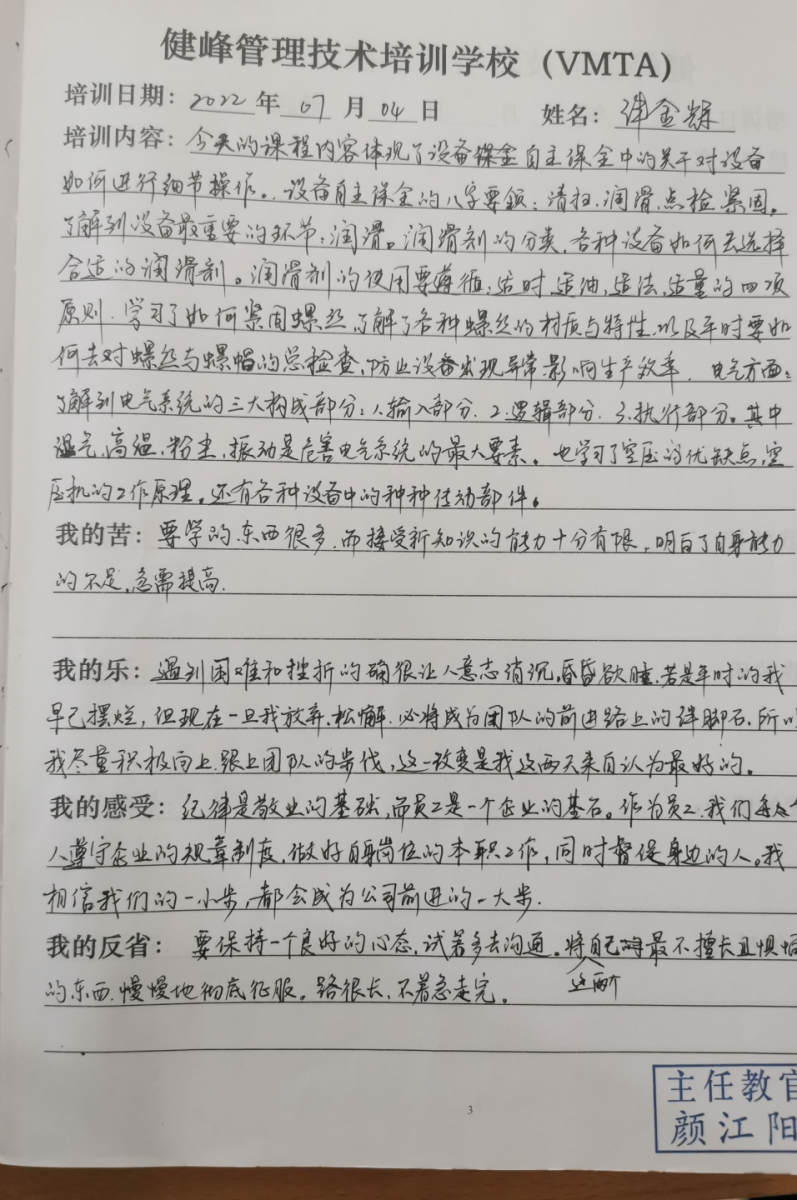 健峰管理技术培训学校（VMTA）
培训日期：2022 年 07 月 04 日 姓名：
培训内容：今天的课程内容体现了设备保全自主保全中的关于对设备
如何进行细节操作。设备自主保全的八字要领：清扫.润滑.点检.紧固。
了解到设备最重要的环节：润滑。润滑剂的分类.各种设备如何去选择
合适的润滑剂。润滑剂的使用要遵循：适时.适油.适法.适量的四项
原则.学习了如何紧固螺丝.了解了各种螺丝的材质与特性.以及平时要如
何去对螺丝与螺帽的总检查,防止设备出现异常影响生产效率.电气方面：
了解到电气系统的三大构成部分：1.输入部分.2.逻辑部分.3.执行部分。其中
湿气,高温,粉尘,振动是危害电气系统的最大要素。也学习了空压的优缺点,空
压机的工作原理。还有各种设备中的种种传动部件。
我的苦：要学的东西很多.而接受新知识的能力十分有限,明白了自身能力
的不足,急需提高.
我的乐：遇到困难和挫折的确很让人意志消沉,昏昏欲睡.若是平时的我
早已摆烂,但现在一旦我放弃.松懈.必将成为团队的前进路上的绊脚石.所以
我尽量积极向上.跟上团队的步伐,这一改变是我这两天来自认为最好的。
我的感受：纪律是敬业的基础,而员工是一个企业的基石。作为员工.我们每个
人遵守企业的规章制度,做好自身岗位的本职工作,同时督促身边的人。我
相信我们的一小步,都会成为公司前进的一大步.
我的反省：要保持一个良好的心态,试着多去沟通。将自己最不擅长且惧怕
这两个
的东西.慢慢地彻底征服。路很长,不着急走完。
主任教官
颜江阳
3